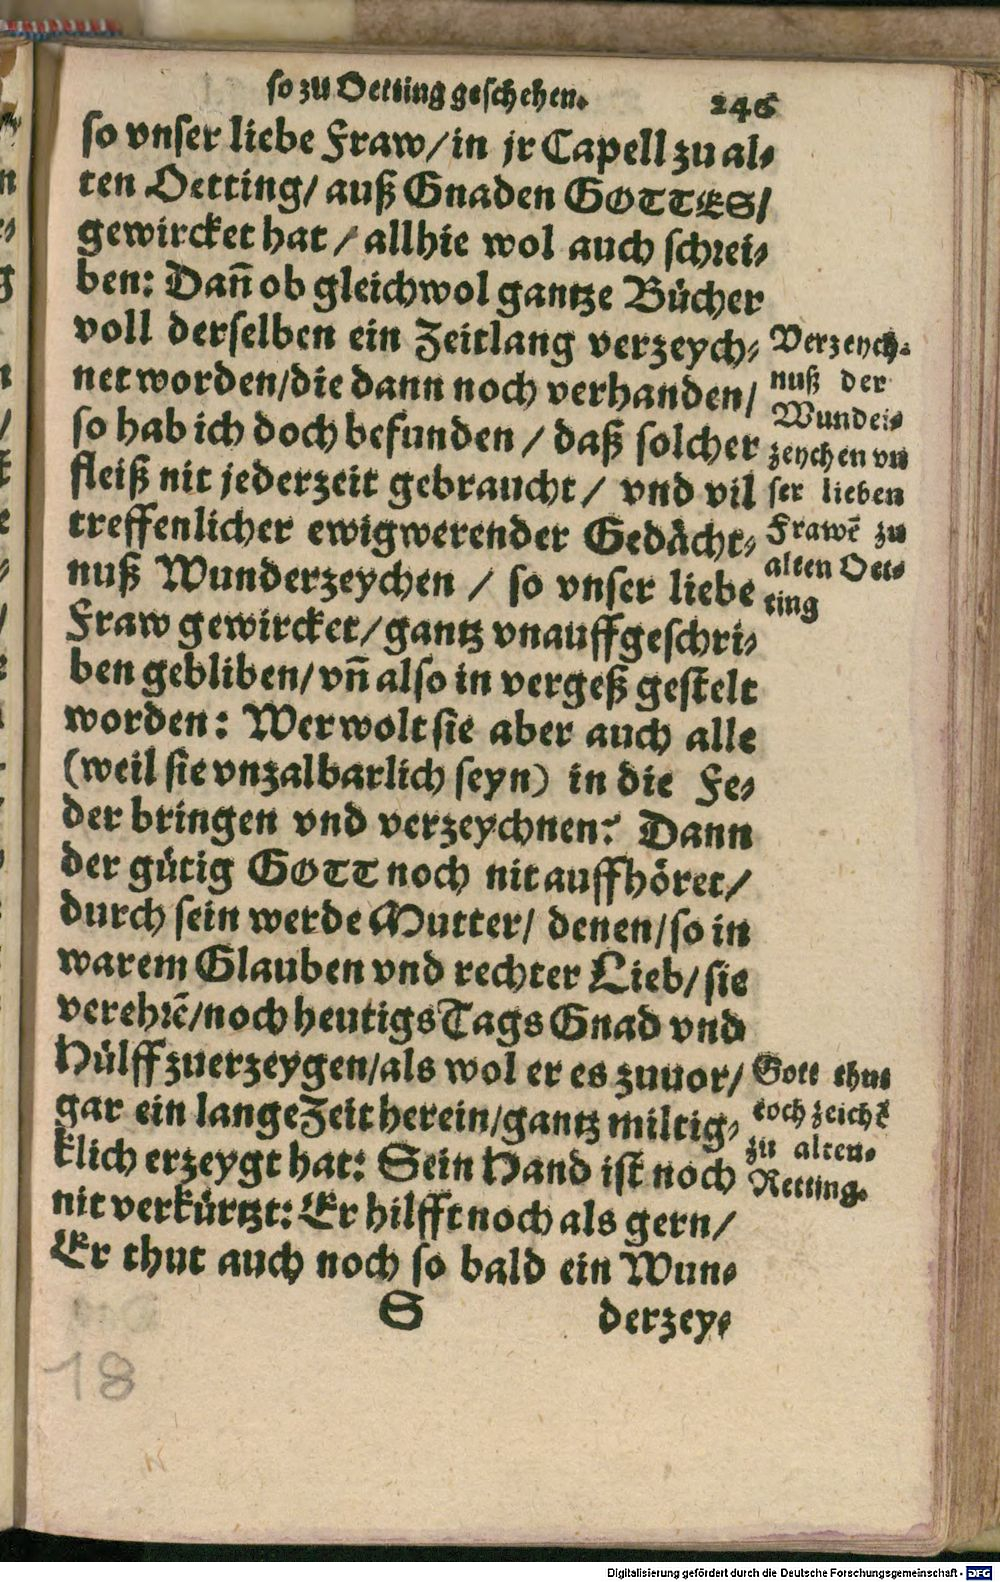 so zu Oetting geschehen. 246
so vnser liebe Fraw/ in jr Capell zu al⸗
ten Oetting/ auß Gnaden GOTTES/
gewircket hat / allhie wol auch schrei⸗
ben: Dañ ob gleichwol gantze Bücher
voll derselben ein Zeitlang verzeych⸗
net worden/ die dann noch verhanden/
so hab ich doch befunden / daß solcher
fleiß nit jederzeit gebraucht / vnd vil
treffenlicher ewigwerender Gedächt⸗
nuß Wunderzeychen / so vnser liebe
Fraw gewircket/ gantz vnauffgeschri⸗
ben gebliben/ vñ also in vergeß gestelt
worden: Wer wolt sie aber auch alle
(weil sie vnzalbarlich seyn) in die Fe⸗
der bringen vnd verzeychnen? Dann
der gütig GOTT noch nit auffhöret/
durch sein werde Mutter/ denen/ so in
warem Glauben vnd rechter Lieb/ sie
verehrẽ/ noch heutigs Tags Gnad vnd
Hülff zuerzeygen/ als wol er es zuuor/
gar ein lange Zeit herein/ gantz miltig⸗
klich erzeygt hat: Sein Hand ist noch
nit verkürtzt: Er hilfft noch als gern/
Er thut auch noch so bald ein Wun⸗
S derzey⸗
Verzeych⸗
nuß der
Wunder⸗
zeychen vn
ser lieben
Frawẽ zu
alten Oet⸗
ting
Gott thut
noch zeichẽ
zu alten⸗
Oetting.
18
Digitalisierung gefördert durch die Deutsche Forschungsgemeinschaft - DFG